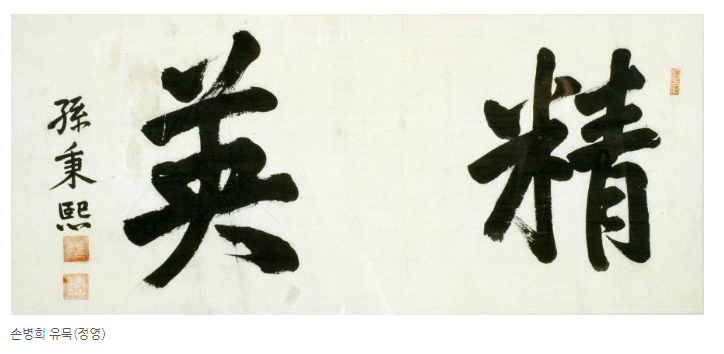 精英
孫秉熙
손병희 유묵(정영)